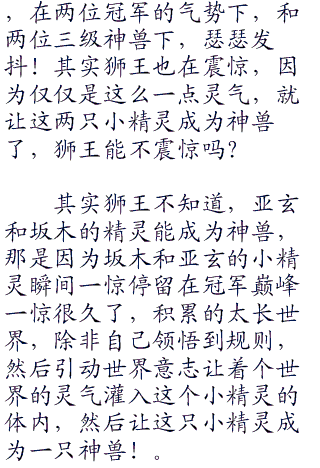 ，在两位冠军的气势下，和
两位三级神兽下，瑟瑟发
抖！其实狮王也在震惊，因
为仅仅是这么一点灵气，就
让这两只小精灵成为神兽
了，狮王能不震惊吗？
其实狮王不知道，亚玄
和坂木的精灵能成为神兽，
那是因为坂木和亚玄的小精
灵瞬间一惊停留在冠军巅峰
一惊很久了，积累的太长世
界，除非自己领悟到规则，
然后引动世界意志让着个世
界的灵气灌入这个小精灵的
体内，然后让这只小精灵成
为一只神兽！。